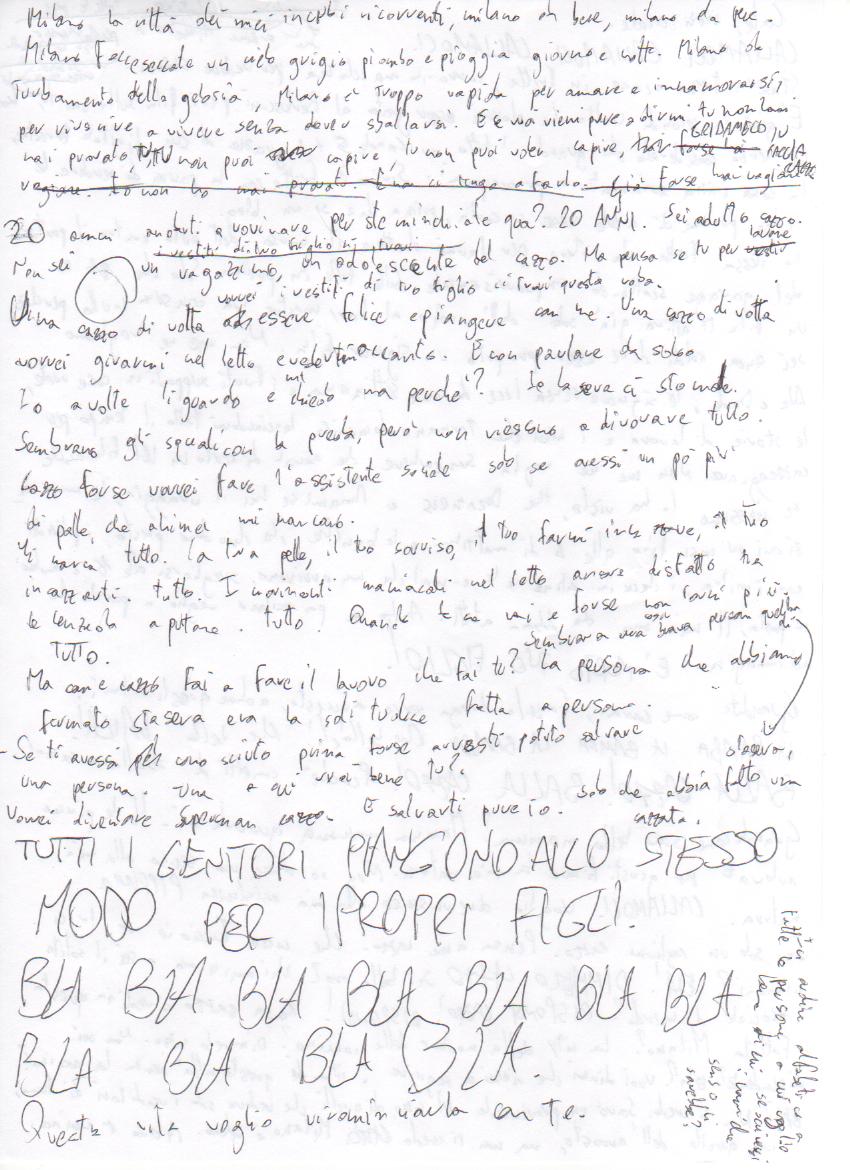 Milano la città dei miei incubi ricorrenti, milano da bere, milano da pere.
Milano un cielo grigio piombo e pioggia giorno e notte. Milano da
Turbamento della gelosia, Milano è troppo rapida per amare e innamorarsi,
per riuscire a vivere senza dover sballarsi. E e vieni pure a dirmi tu non l'hai
mai provato, TU non puoi capire, tu non puoi voler capire, forse hai GRIDAMELO IN FACCIA
ragione. Io non ho mai provato. E non ci tengo a farlo. Già forse hai ragione
20 anni andati a rovinare per ste minchiate qua? 20 ANNI. Sei adulto cazzo.
i vestiti di tuo figlio ci trovi
Non sei un ragazzino, un adolescente del cazzo. Ma pensa se tu per
vorrei i vestiti di tuo figlio ci trovi questa roba.
Una cazzo di volta essere felice e piangere con me. Una cazzo di volta
vorrei girarmi nel letto e vederti accanto. E non parlare da solo
Io a volte ti guardo e mi chiedo ma perché? Se la sera ci sto male.
Sembrano gli squali con la preda, però non riescono a divorare tutto.
cazzo forse vorrei fare l'assistente sociale solo se avessi un po' più
di palle, che ahimè mi mancano.
Mi manca tutto. La tua pelle, il tuo sorriso, il tuo farmi, il tuo
incazzarti. tutto. I movimenti maniacali nel letto ancora disfatto tra
le lenzuola a puttane. Tutto. Quando te ne vai e forse non torni più.
TUTTO.
Sembrava una brava persona quella di
Ma come cazzo fai a fare il lavoro che fai te? La persona che abbiamo
fermato stasera era la solitudine fatta a persona.
stasera,
- Se ti avessi conosciuto prima forse avresti potuto salvare
una persona. Una a cui vuoi bene tu? solo che abbia fatto una
cazzata.
Vorrei diventare Superman cazzo. E salvarti pure io.
TUTTI I GENITORI PIANGONO ALLO STESSO
MODO PER I PROPRI FIGLI.
BLA BLA BLA BLA BLA BLA BLA
BLA BLA BLA BLA.
Questa vita voglio ricominciarla con te.
in ordine alfabetico a
tutte le persone a cui voglio
bene di mi se
sarebbe?